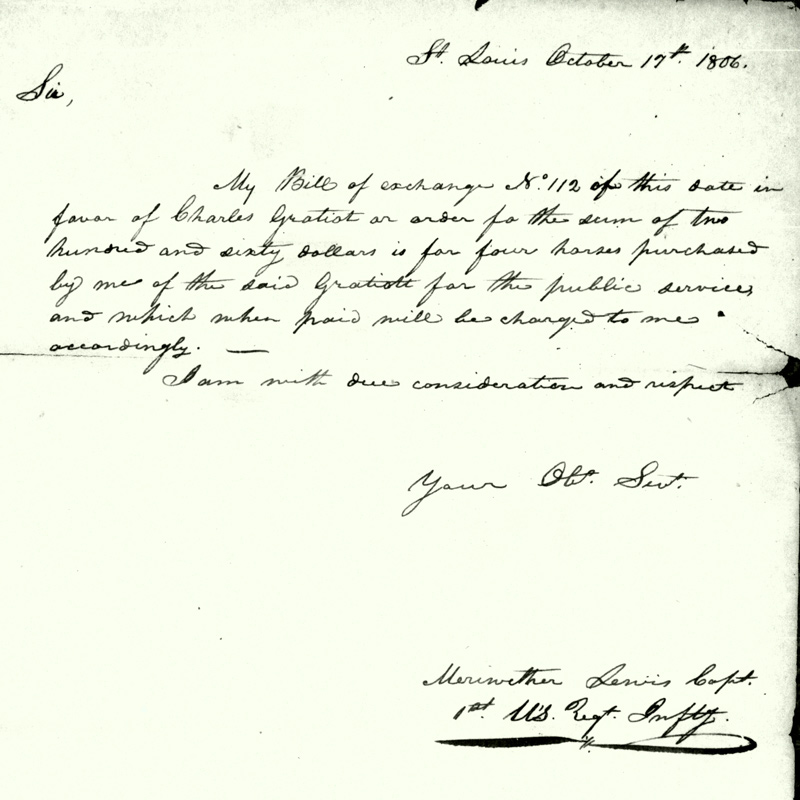 St. Louis October 17th. 1806.
Sir,
My Bill of exchange No. 112 of this date in
favor of Charles Gratiot or order fo the sum of two
hundred and sixty dollars is for four horses purchased
by me of the said Gratiott for the public service,
and which when paid will be charged to me
accordingly. —
I am with due consideration and respect
Your Obt. Sevt.
Meriwether Lewis Capt.
1st. U'S. Regt. Infty.